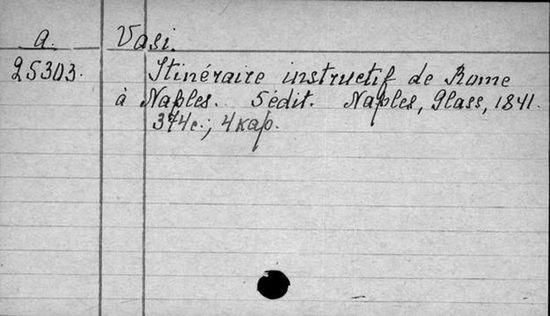 a. Vasi.
25303. Itinéraire instructif de Rome
à Naples. 5édit. Naples, Glass, 1841.
374c.; 4кар.